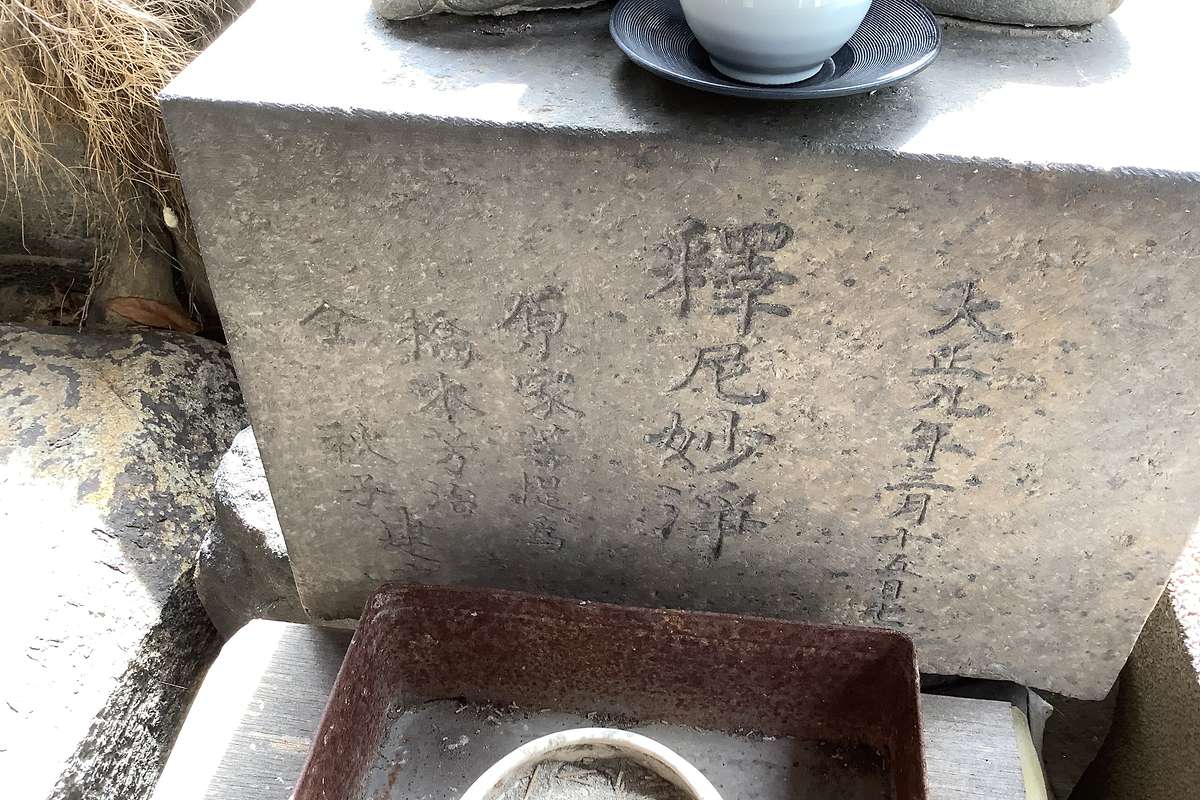 大正九年三月十五日亡
釋尼妙淨
原家菩提為
橋本芳治
仝 秋子 建之